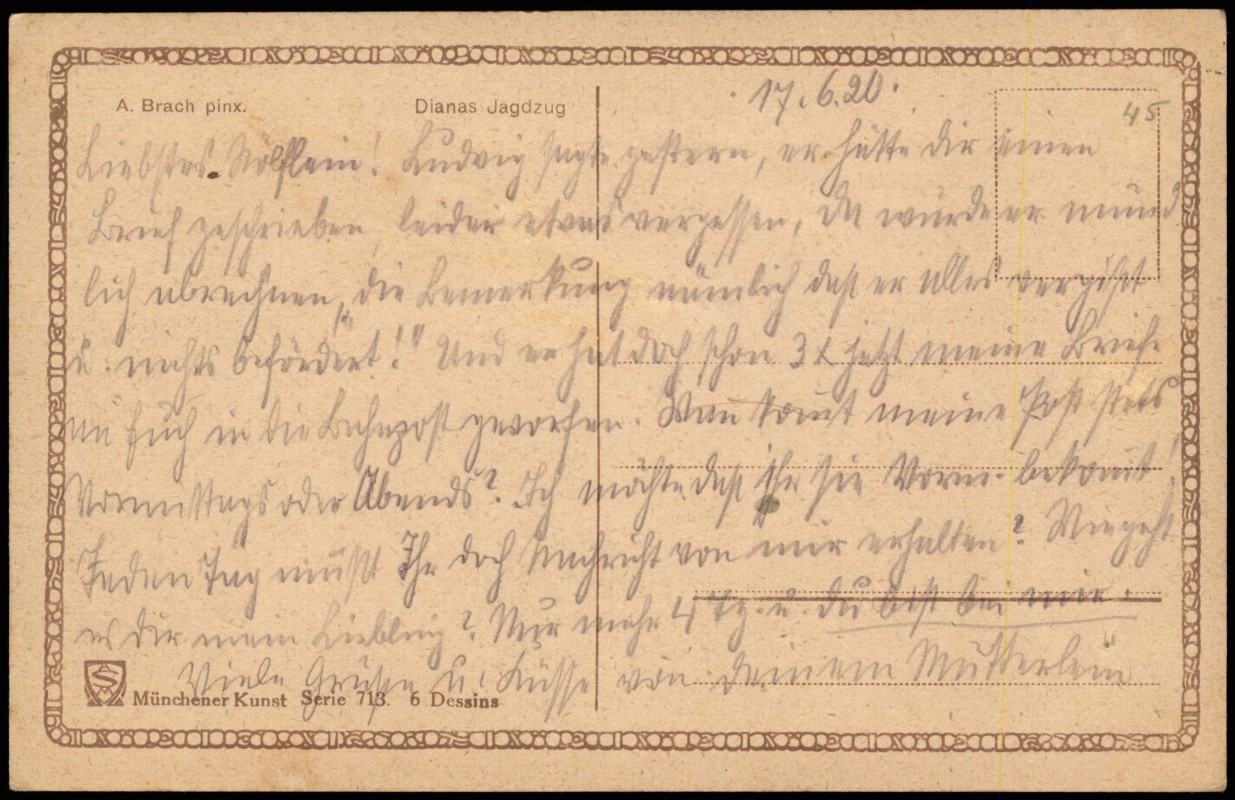 17.6.20.
45
A. Brach pinx.
Dianas Jagdzug
Liebstes Wölflein! Ludwig sagte gestern, er hätte dir einen
Brief geschrieben, leider etwas vergessen, da würde er münd
lich abrechnen, „die Bemerkung nämlich dass er alles vergißt
u. nichts befördert!" Und er hat doch schon 3 x jetzt meine Briefe
an Euch in die Bahnpost geworfen. Wan̅ kom̅t meine Post stets
Vormittags oder Abends? Ich möchte dass ihr sie Vorm. bekom̅t!
Jeden Tag müßt Ihr doch Nachricht von mir erhalten? Wie geht
es dir mein Liebling? Nur mehr 4 Tg. u. du bist bei mir.
Viele Grüße u. Küsse von deinem Mutterlein
Münchener Kunst Serie 713. 6 Dessins